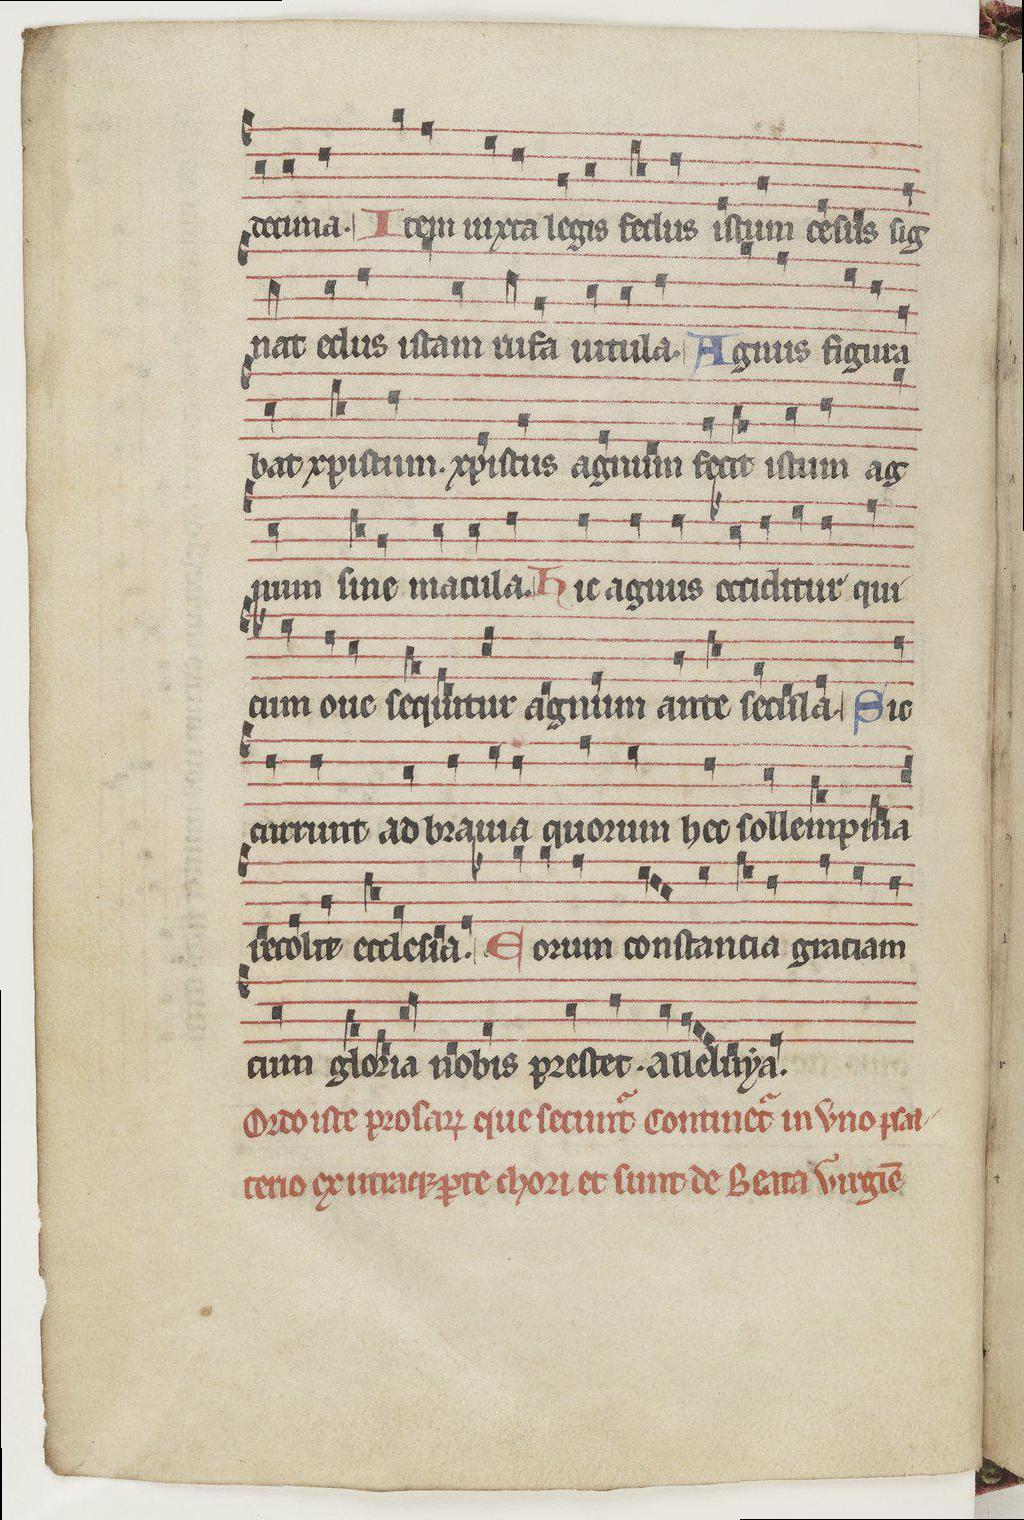 decima. Item iuxta legis fedus istum cesus sig
nat edus istam rufa uitula. Agnus figura
bat xpistum. xpistus agnum fecit istum ag
num sine macula. Hic agnus occiditur qui
cum oue sequitur agnum ante secula. Sic
currunt ad brauia quorum hec sollempnia
recolit ecclesia. Eorum constancia graciam
cum gloria nobis prestet. alleluya.
Ordo iste prosaꝝ que secunt᷑ Continet᷑ in vno psal
terio ex utraqꝫ ꝑte chori et sunt de Beata virgiē